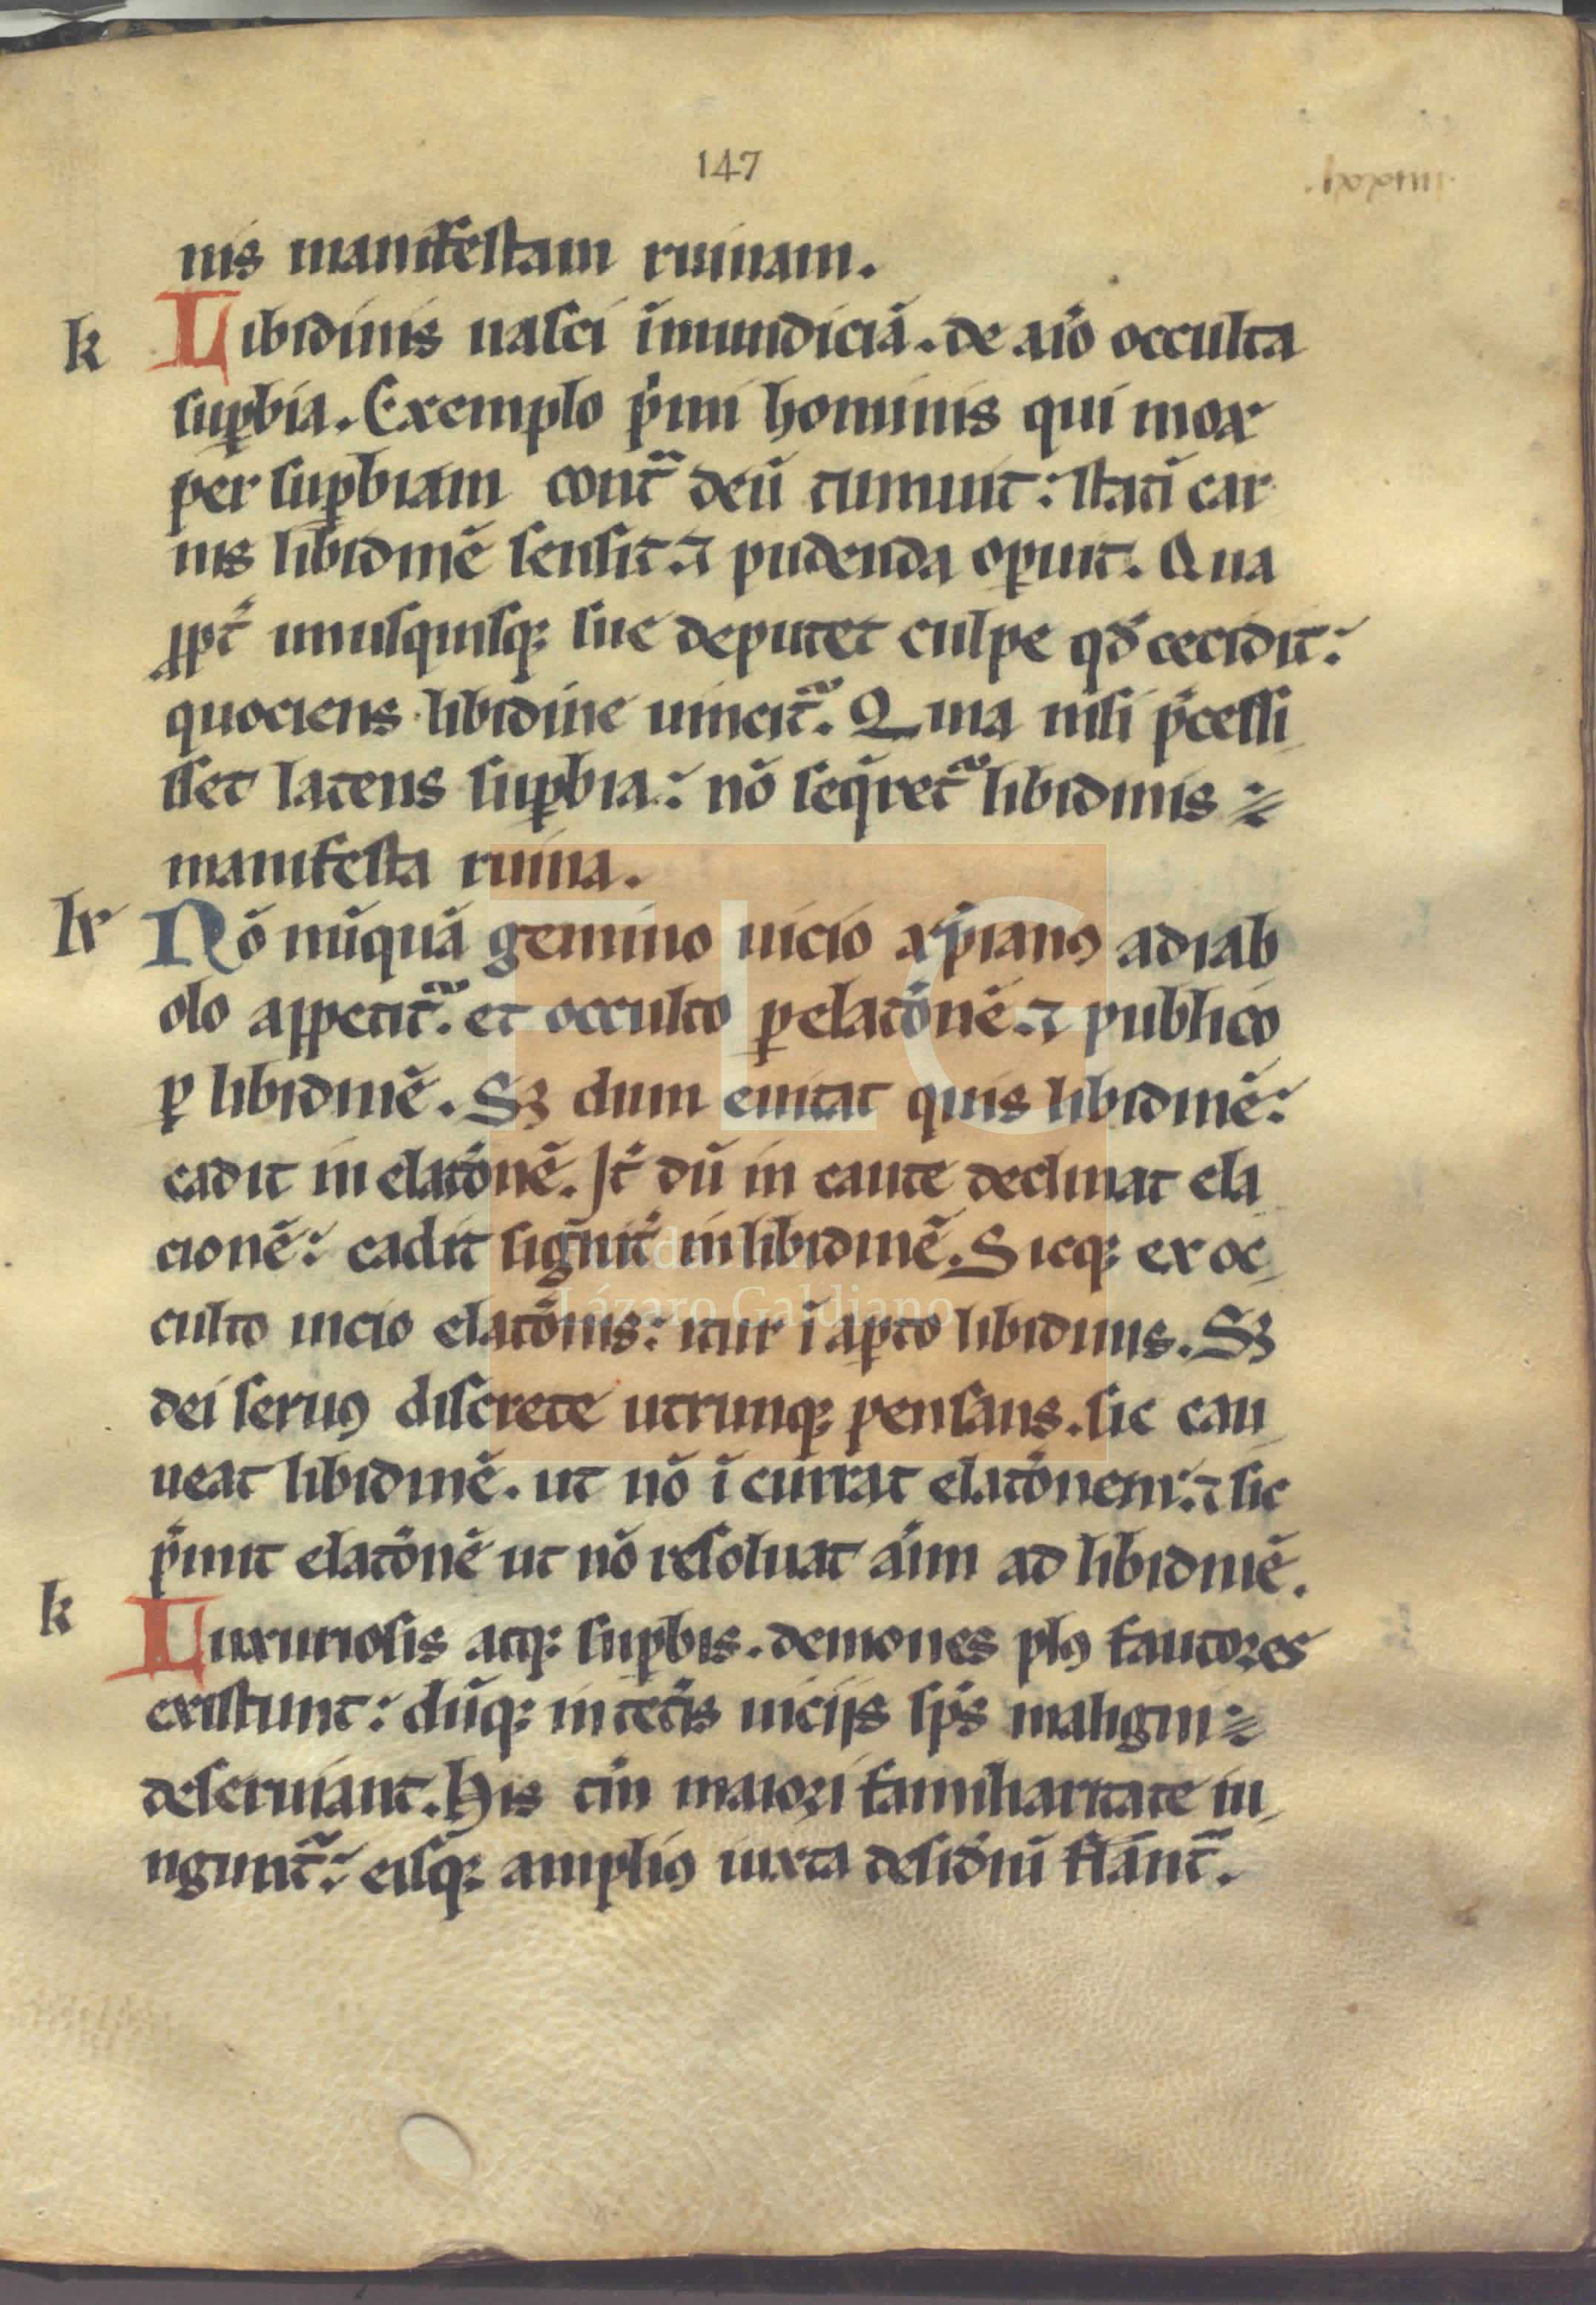 147
.lxxxiiii.
nis manifestam ruinam.
k Libidinis nasci īmundiciā. de aīo occulta
suꝑbia. Exemplo pͥmi hominis qui mox
per suꝑbiam contᷓ deū tumuit: stati᷑ car
nis libidinē sensit. ⁊ pudenda oꝑuit. Qua
ꝓpt͛ unusquisqꝫ sue deputet culpe qd̓ cecidit:
quociens libidine uincit᷑. Quia nisi p̄cessi
sset latens suꝑbia: nō seq̄ret᷑ libidinis
manifesta ruina.
k Nō nūquā gemino uicio xp̄ianꝰ adiab
olo appetit᷑. et occulto ꝑ elatōnē. ⁊ publico
ꝑ libidinē. Sꝫ dum euitat quis libidinē:
cadit in elatōnē. It͛ dū in caute declinat ela
cionē: cadit sigͣnit͛ in libidinē. Sicqꝫ ex oc
culto uicio elatōnis: itur ī aꝑto libidinis. Sꝫ
dei seruꝰ discrete utrunqꝫ pensans. sic cau
ueat libidinē. ut nō ī currat elatōnem. ⁊ sic
p̄mit elatōnē ut nō resoluat aīm ad libidinē.
k Luxuriosis atqꝫ suꝑbis. demones plꝰ fautores
existunt: dūqꝫ in cet͛is uicijs sp̄s maligni
deseruiant. His tn̄ maiori familiaritate iu
ngunt᷑: eisqꝫ ampliꝰ iuxta desid̓iū fiant᷑.
FLG
Fundación
Lázaro Galdiano